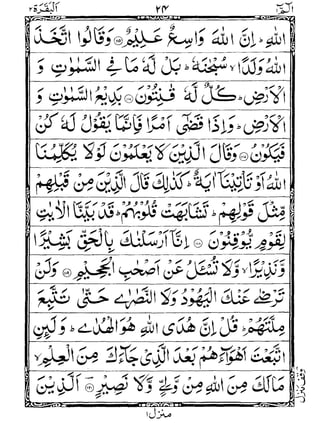 الٓمّٓ ١ ٢٤ اَلْبَقَرَة ٢
اللّٰهِ ؕ اِنَّ اللّٰهَ وَاسِعٌ عَلِيْمٌ ﴿۱۱۵﴾ وَقَالُوا اتَّخَذَ
اللّٰهُ وَلَدًا ۙ سُبْحٰنَهٗ ؕ بَلْ لَّهٗ مَا فِى السَّمٰوٰتِ وَ
الْاَرْضِ ؕ كُلٌّ لَّهٗ قٰنِتُوْنَ ﴿۱۱۶﴾ بَدِيْعُ السَّمٰوٰتِ وَ
الْاَرْضِ ؕ وَاِذَا قَضٰٓى اَمْرًا فَاِنَّمَا يَقُوْلُ لَهٗ كُنْ
فَيَكُوْنُ ﴿۱۱۷﴾ وَقَالَ الَّذِيْنَ لَا يَعْلَمُوْنَ لَوْلَا يُكَلِّمُنَا
اللّٰهُ اَوْ تَاْتِيْنَآ اٰيَةٌ ؕ كَذٰلِكَ قَالَ الَّذِيْنَ مِنْ قَبْلِهِمْ
مِّثْلَ قَوْلِهِمْ ؕ تَشَابَهَتْ قُلُوْبُهُمْ ؕ قَدْ بَيَّنَّا الْاٰيٰتِ
لِقَوْمٍ يُّوْقِنُوْنَ ﴿۱۱۸﴾ اِنَّآ اَرْسَلْنٰكَ بِالْحَقِّ بَشِيْرًا
وَّنَذِيْرًا ۙ وَّلَا تُسْئَلُ عَنْ اَصْحٰبِ الْجَحِيْمِ ﴿۱۱۹﴾ وَلَنْ
تَرْضٰى عَنْكَ الْيَهُوْدُ وَلَا النَّصٰرٰى حَتّٰى تَتَّبِعَ
مِلَّتَهُمْ ؕ قُلْ اِنَّ هُدَى اللّٰهِ هُوَ الْهُدٰى ؕ وَلَئِنِ
اتَّبَعْتَ اَهْوَآءَهُمْ بَعْدَ الَّذِىْ جَآءَكَ مِنَ الْعِلْمِ ۙ
مَا لَكَ مِنَ اللّٰهِ مِنْ وَّلِىٍّ وَّلَا نَصِيْرٍ ﴿۱۲۰﴾ اَلَّذِيْنَ
منزل ١